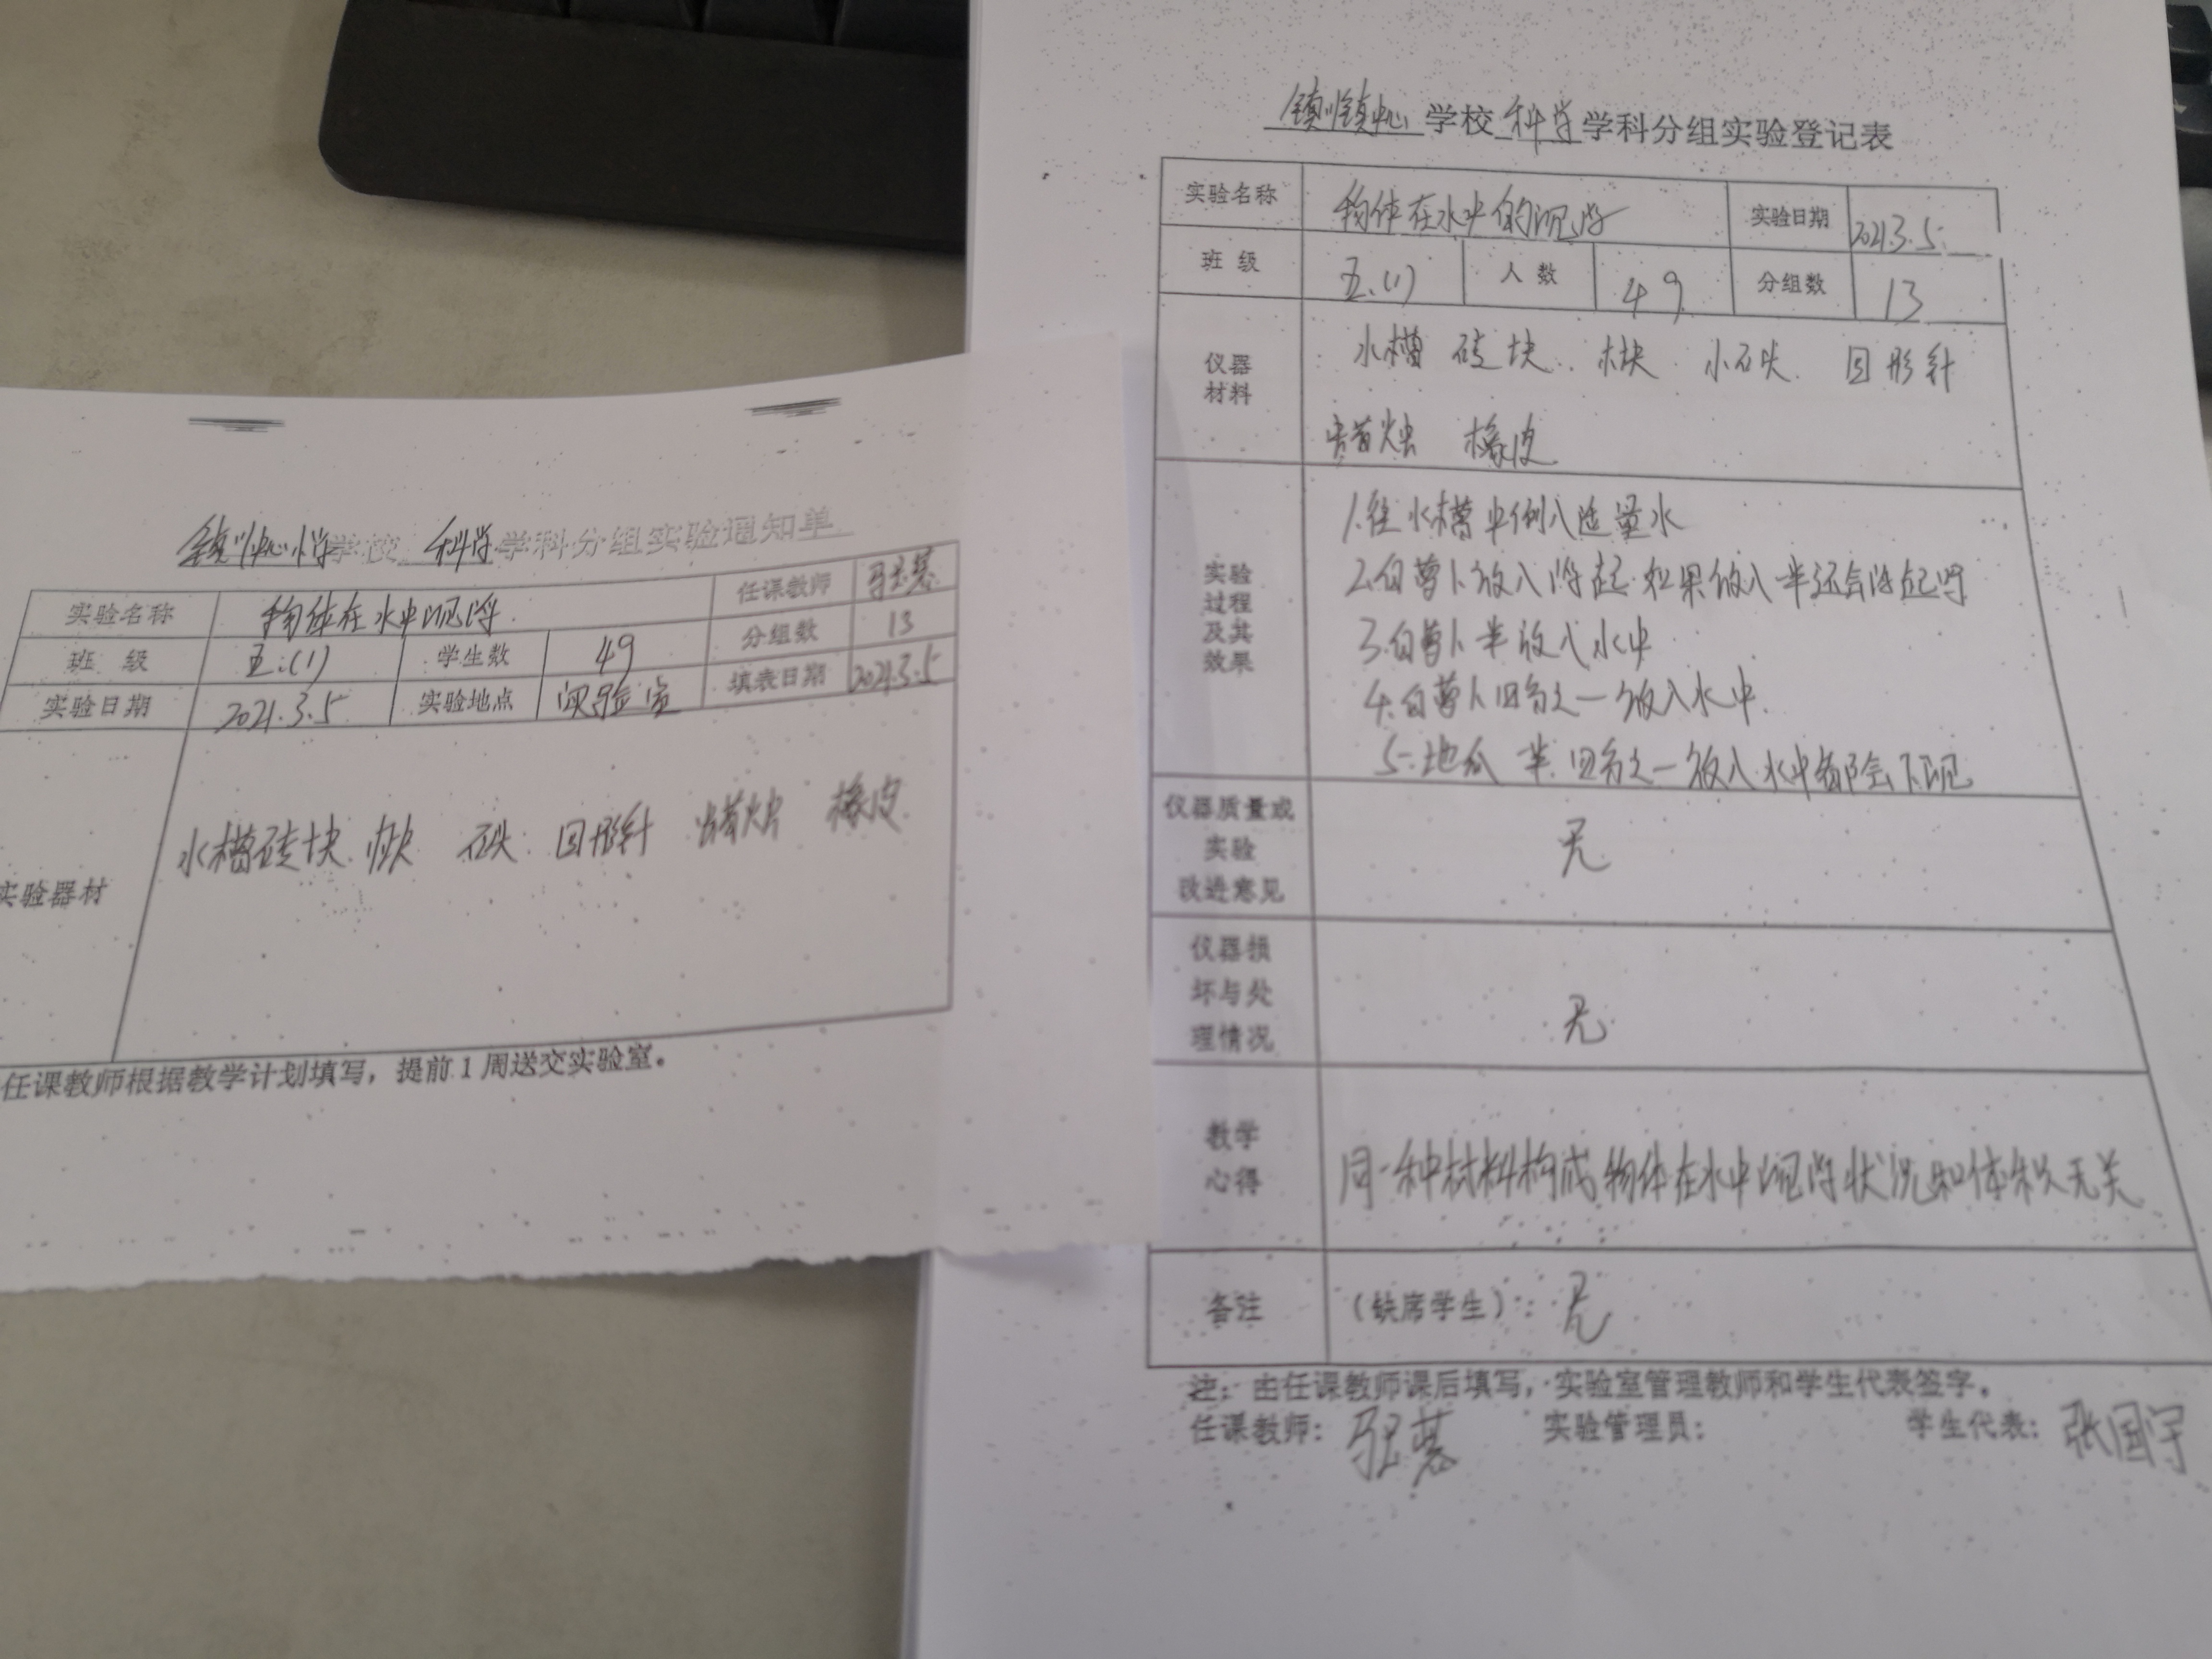 镇川中心小学学校 科学学科分组实验通知单
实验名称 物体在水中沉浮 任课教师
班 级 五.(1) 学生数 49 分组数 13
实验日期 2021.3.5 实验地点 实验室 填表日期 2021.3.5
实验器材 水槽 砖块 木块 石头 回形针 蜡烛 橡皮
任课教师根据教学计划填写，提前1周送交实验室。
镇川镇中心学校 科学学科分组实验登记表
实验名称 物体在水中的沉浮 实验日期 2021.3.5.
班 级 五.(1) 人 数 49 分组数 13
仪器材料 水槽 砖块 木块 小石头 回形针
蜡烛 橡皮
实验过程及其效果
1.往水槽中倒入适量水
2.白萝卜放入浮起.如果放入半还会浮起吗
3.白萝卜半放入水中
4.白萝卜四分之一放入水中.
5.地瓜 半.四分之一放入水中都会下沉
仪器质量或实验改进意见 无
仪器损坏与处理情况 无
教学心得 同一种材料构成物体在水中沉浮状况和体积无关
备注 （缺席学生）：无
注：由任课教师课后填写，实验室管理教师和学生代表签字。
任课教师： 实验管理员： 学生代表：张国宇